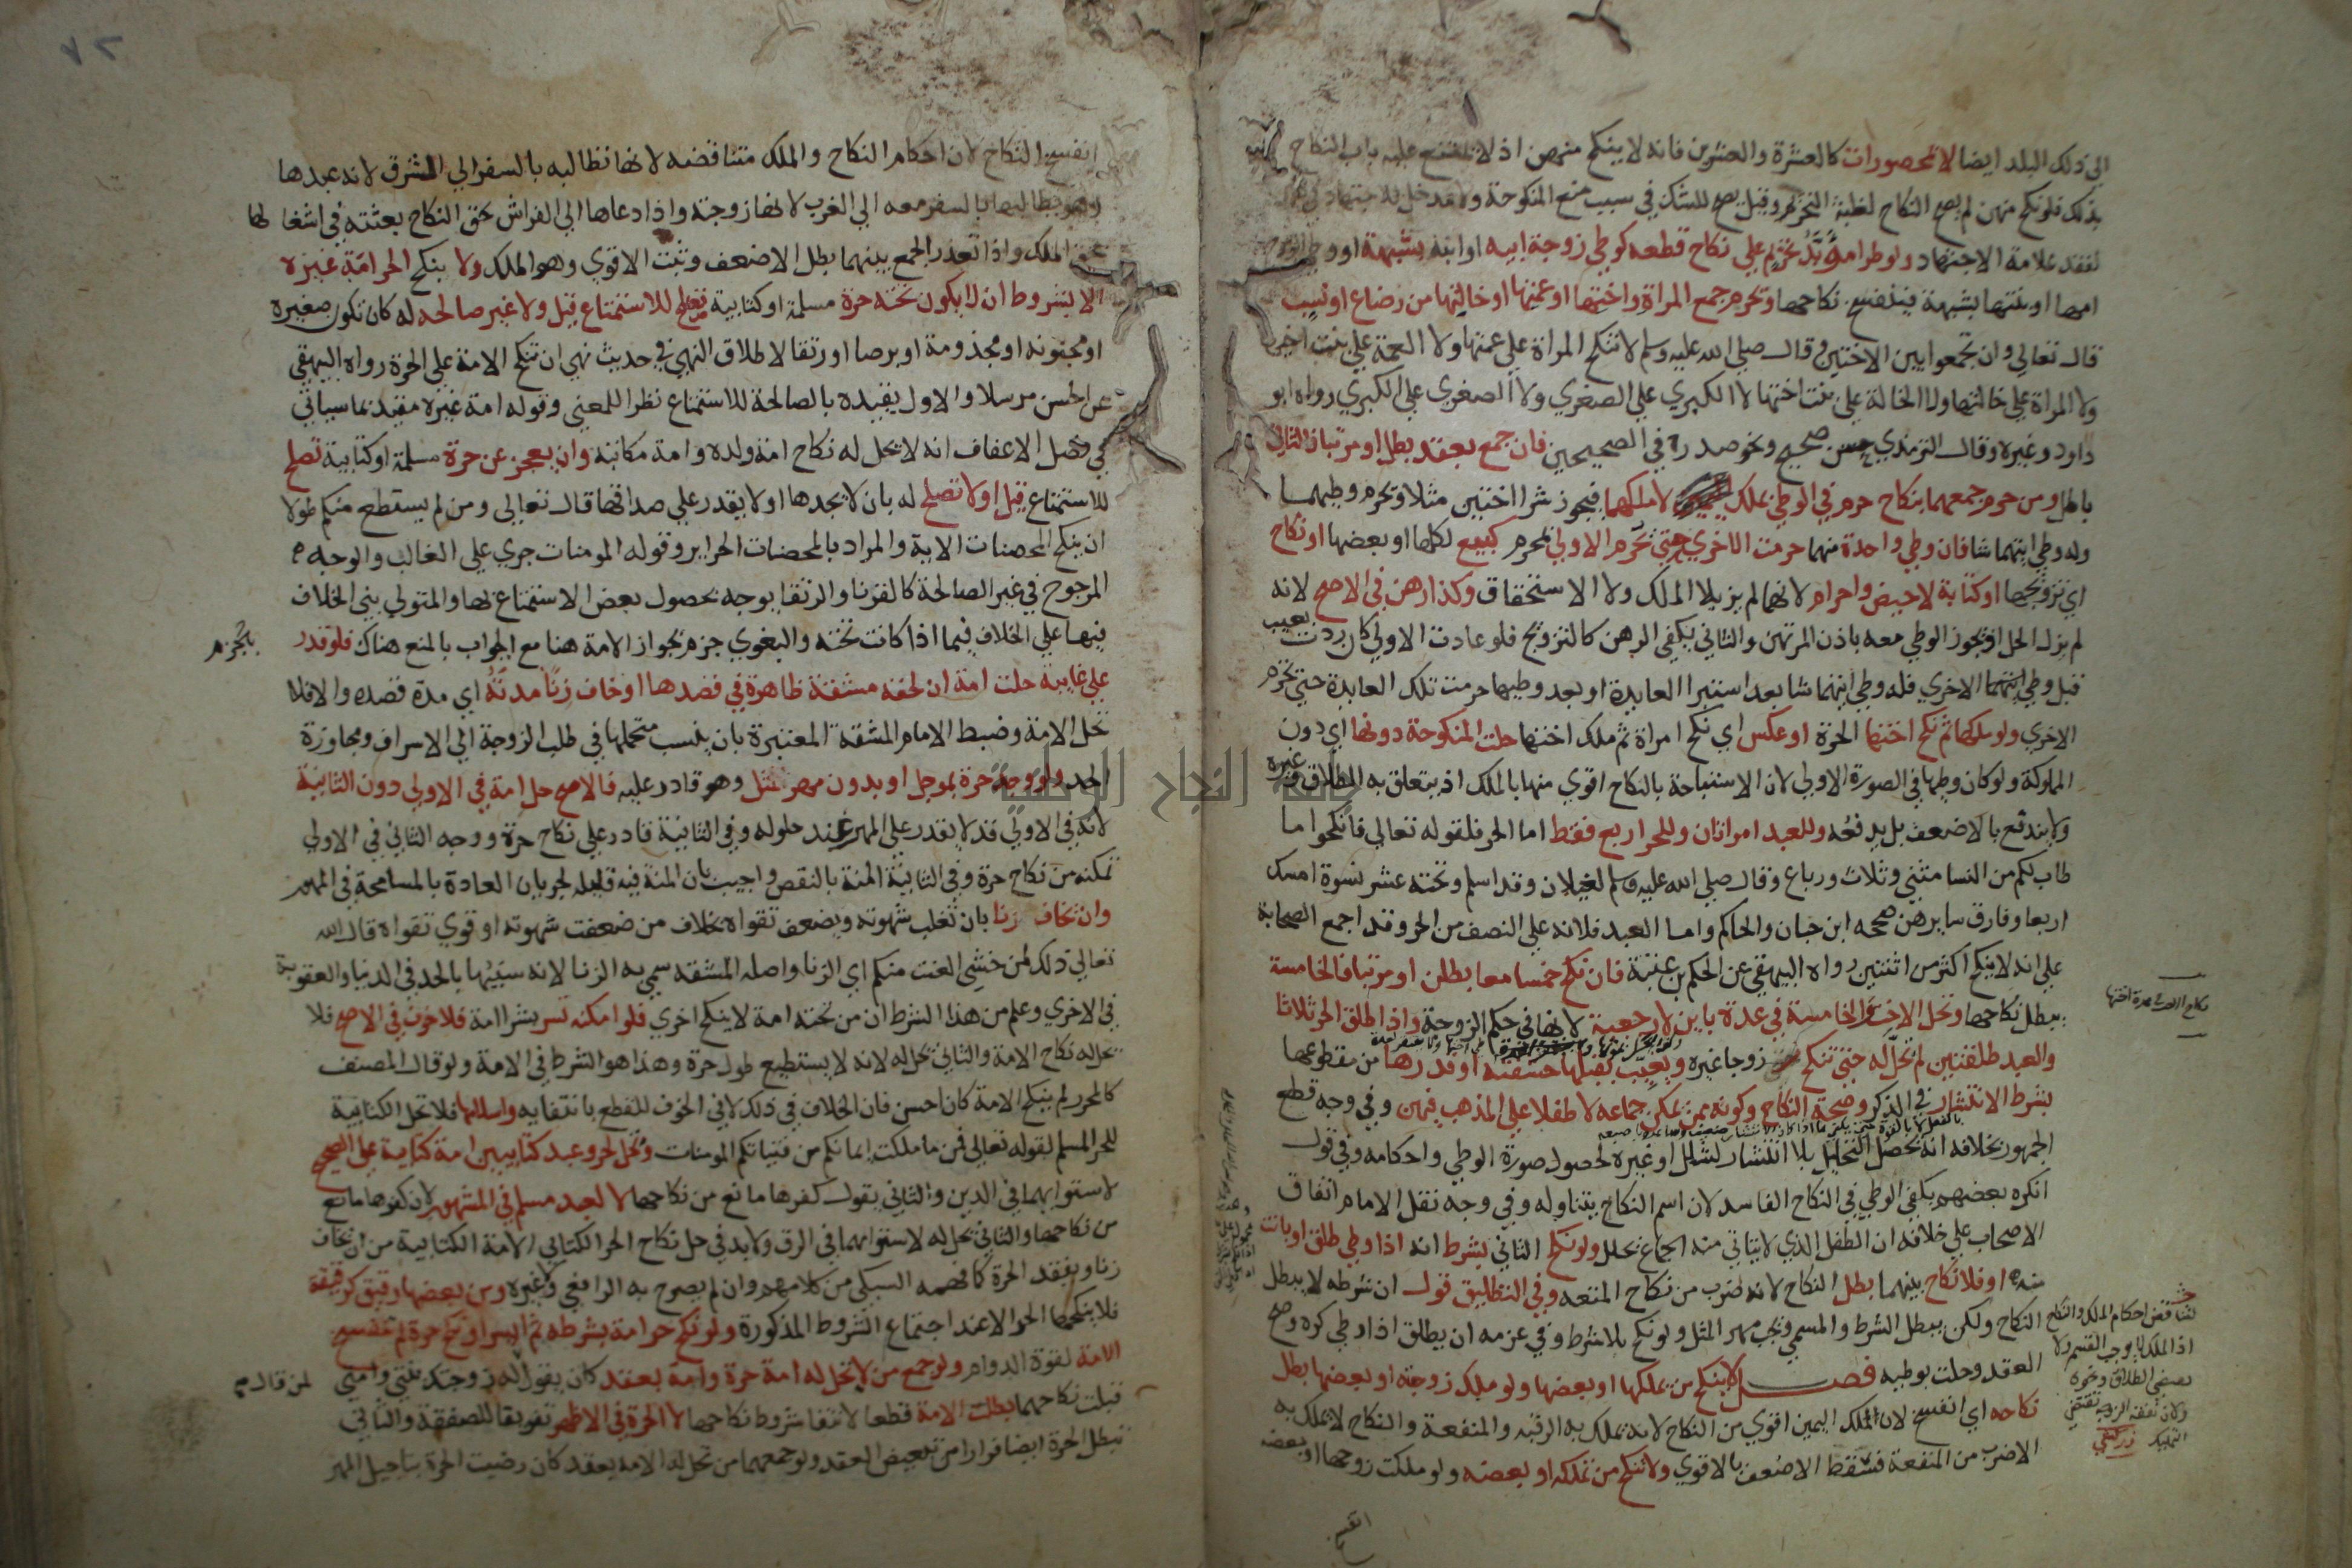 الي ذلك البلد ايضا لا محصورات كالعشرة والعشرين فانه لا ينكح منهن اذ لا عليه باب النكاح
بذلك فلو نكح منهن لم يصح النكاح لغلبة التحريم وقيل يصح للشك في سبب منع المنكوحة ولا مدخل للاجتهاد في
لفقد علامة الاجتهاد ولو طرا مؤبد تحريم علي نكاح قطعه كوطي زوجة ابيه او ابنه بشبهة او وطي
امها او بنتها بشبهة فينفسخ نكاحها وتحرم جمع المراة واختها او عمتها او خالتها من رضاع او نسب
قال تعالي وان تجمعوا بين الاختين وقال صلي الله عليه وسلم لا تنكح المراة علي عمتها ولا العمة علي بنت اخيها
ولا المراة علي خالتها ولا الخالة علي بنت اختها لا الكبري علي الصغري ولا الصغري علي الكبري رواه ابو
داود وغيره وقال الترمذي حسن صحيح ونحو صدره في الصحيحين فان جمع بعقد بطلا او مرتبا فالثاني
باطل ومن حرم جمعهما بنكاح حرم في الوطي بملك لا ملكهما فيجوز شرا اختين مثلا وتحرم وطيهما
وله وطي ايتهما شا فان وطي واحدة منهما حرمت الاخري حتي تحرم الاولي بمحرم كبيع لكلها او بعضها او نكاح
اي تزويجها او كتابة لا حيض واحرام لانهما لم يزيلا الملك ولا الاستحقاق وكذا رهن في الاصح لانه
لم يزل الحل اذ يجوز الوطي معه باذن المرتهن والثاني يكفي الرهن كالتزويج فلو عادت الاولي كان ردت بعيب
قبل وطي الاخري فله وطي ايتهما شا بعد استبرا العايدة او بعد وطيها حرمت تلك العايدة حتي تحرم
الاخري ولو ملكها ثم نكح اختها الحرة او عكس اي نكح امراة ثم ملك اختها حلت المنكوحة دونها اي دون
المملوكة ولو كان وطيها في الصورة الاولي لان الاستباحة بالنكاح اقوي منها بالملك اذ يتعلق به الطلاق وغيره
ولا يندفع بالاضعف بل يدفعه وللعبد امراتان وللحر اربع فقط اما الحر فلقوله تعالي فانكحوا ما
طاب لكم من النسا مثني وثلاث ورباع وقال صلي الله عليه وسلم لغيلان وقد اسلم وتحته عشر نسوة امسك
اربعا وفارق سايرهن صححه ابن حبان والحاكم واما العبد فلانه علي النصف من الحر وقد اجمع الصحابة
علي انه لا ينكح اكثر من اثنتين رواه البيهقي عن الحكم بن عتبة فان نكح خمسا معا بطلن او مرتبا فالخامسة
يبطل نكاحها وتحل الاخت والخامسة في عدة باين لا رجعية لانها في حكم الزوجة واذا طلق الحر ثلاثا
والعبد طلقتين لم تحل له حتي تنكح زوجا غيره ويغيب بقبلها حشفته او قدرها من مقطوعها
بشرط الانتشار في الذكر وصحة النكاح وكونه ممن يمكن جماعه لا طفلا علي المذهب فيهن وفي وجه قطع
الجمهور بخلافه انه يحصل التحليل بلا انتشار لشلل او غيره لحصول صورة الوطي واحكامه وفي قول
انكره بعضهم يكفي الوطي في النكاح الفاسد لان اسم النكاح يتناوله وفي وجه نقل الامام اتفاق
الاصحاب علي خلافه ان الطفل الذي لا يتاتي منه الجماع يحلل ولو نكح الثاني بشرط انه اذا وطي طلق او بانت
منه او فلا نكاح بينهما بطل النكاح لانه ضرب من نكاح المتعه وفي التطليق قول ان شرطه لا يبطل
النكاح ولكن يبطل الشرط والمسمي ويجب مهر المثل ولو نكح بلا شرط وفي عزمه ان يطلق اذا وطي كره وصح
العقد وحلت بوطيه فصل لا ينكح من يملكها او بعضها ولو ملك زوجته او بعضها بطل
نكاحه اي انفسخ لان الملك اليمين اقوي من النكاح لانه يملك به الرقبة والمنفعة والنكاح لا يملك به
الاضرب من المنفعة فسقط الاضعف بالاقوي ولا تنكح من تملكه او بعضه ولو ملكت زوجها او بعضه
لتناقض احكام الملك والنكاح
اذ الملك لا يوجب القسم ولا
يقتضي الطلاق ونحوه
ولان نفقة الزوجة تقتضي
التمليك زركشي
انفسخ النكاح لان احكام النكاح والملك متناقضه لانها تطالبه بالسفر الي المشرق لانه عبدها
وهو يطالبها بالسفر معه الي الغرب لانها زوجته واذا دعاها الي الفراش بحق النكاح بعثته في اشغالها
بحق الملك واذا تعذر الجمع بينهما بطل الاضعف وثبت الاقوي وهو الملك ولا ينكح الحر امة غيره
الا بشروط ان لا يكون تحته حرة مسلمة او كتابية تصلح للاستمتاع قيل ولا غير صالحه له كان تكون صغيره
او مجنونه او مجذومة او برصا او رتقا لاطلاق النهي في حديث نهي ان تنكح الامة علي الحرة رواه البيهقي
عن الحسن مرسلا والاول يقيده بالصالحة للاستمتاع نظرا للمعني وقوله امة غيره مقيد بما سياتي
في فصل الاعفاف انه لا يحل له نكاح امة ولده وامة مكاتبه وان يعجز عن حرة مسلمة او كتابية تصلح
للاستمتاع قيل او لا تصلح له بان لا يجدها او لا يقدر علي صداقها قال تعالي ومن لم يستطع منكم طولا
ان ينكح المحصنات الاية والمراد بالمحصنات الحراير وقوله المومنات جري علي الغالب والوجه
المرجوح في غير الصالحة كالقرنا والرتقا يوجه بحصول بعض الاستمتاع بها والمتولي بني الخلاف
فيها علي الخلاف فيما اذا كانت تحته والبغوي جزم بجواز الامة هنا مع الجواب بالمنع هناك فلو قدر
علي غايبة حلت امة ان لحقه مشقة ظاهرة في قصدها او خاف زنا مدته اي مدة قصده والا فلا
تحل الامة وضبط الامام المشقة المعتبرة بان ينسب متحملها في طلب الزوجة الي الاسراف ومجاوزة
الحد ولو وجد حرة بموجل او بدون مهر مثل وهو قادر عليه فالاصح حل امة في الاولي دون الثانية
لانه في الاولي قد لا يقدر علي المهر عند حلوله وفي الثانية قادر علي نكاح حرة ووجه الثاني في الاولي
تمكنه من نكاح حرة وفي الثانية المنة بالنقص واجيب بان المنة فيه قليله لجريان العادة بالمسامحة في المهور
وان يخاف زنا بان تغلب شهوته ويضعف تقواه بخلاف من ضعفت شهوته او قوي تقواه قال الله
تعالي ذلك لمن خشي العنت منكم اي الزنا واصله المشقه سمي به الزنا لانه سببها بالحد في الدنيا والعقوبة
في الاخري وعلم من هذا الشرط ان من تحته امة لا ينكح اخري فلو امكنه تسر بشرا امة فلا خوف في الاصح فلا
تحل له نكاح الامة والثاني تحل له لانه لا يستطيع طول حرة وهذا هو الشرط في الامة ولو قال المصنف
كالمحرر لم ينكح الامة كان احسن فان الخلاف في ذلك لا في الخوف للقطع بانتفايه واسلامها فلا تحل الكتابية
للحر المسلم لقوله تعالي فمن ما ملكت ايمانكم من فتياتكم المومنات وتحل لحر وعبد كتابيين امة كتابية علي الصحيح
لاستوايهما في الدين والثاني يقول كفرها مانع من نكاحها لا لعبد مسلم في المشهور لان كفرها مانع
من نكاحها والثاني تحل له لاستوايهما في الرق ولا بد في حل نكاح الحر الكتابي الامة الكتابية من ان يخاف
زنا ويفقد الحرة كما فهمه السبكي من كلامهم وان لم يصرح به الرافعي وغيره ومن بعضها رقيق كرقيقة
فلا ينكحها الحر الا عند اجتماع الشروط المذكورة ولو نكح حر امة بشرطه ثم ايسر او نكح حرة لم تنفسخ
الامة لقوة الدوام ولو جمع من لا تحل له امة حرة وامة بعقد كان يقول له زوجتك بنتي وامتي
قبلت نكاحهما بطلت الامة قطعا لانتفا شروط نكاحها لا الحرة في الاظهر تفريقا للصفقة والثاني
تبطل الحرة ايضا فرارا من تبعيض العقد ولو جمعهما من تحل له الامة بعقد كان رضيت الحرة بتاجيل المهر